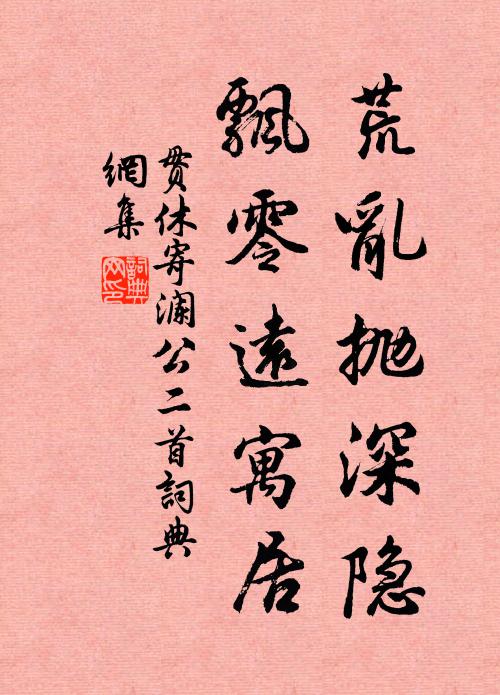 荒亂抛深隐
飄零遠寓居
贯休寄澜公二首詞典
網集
詞典網印